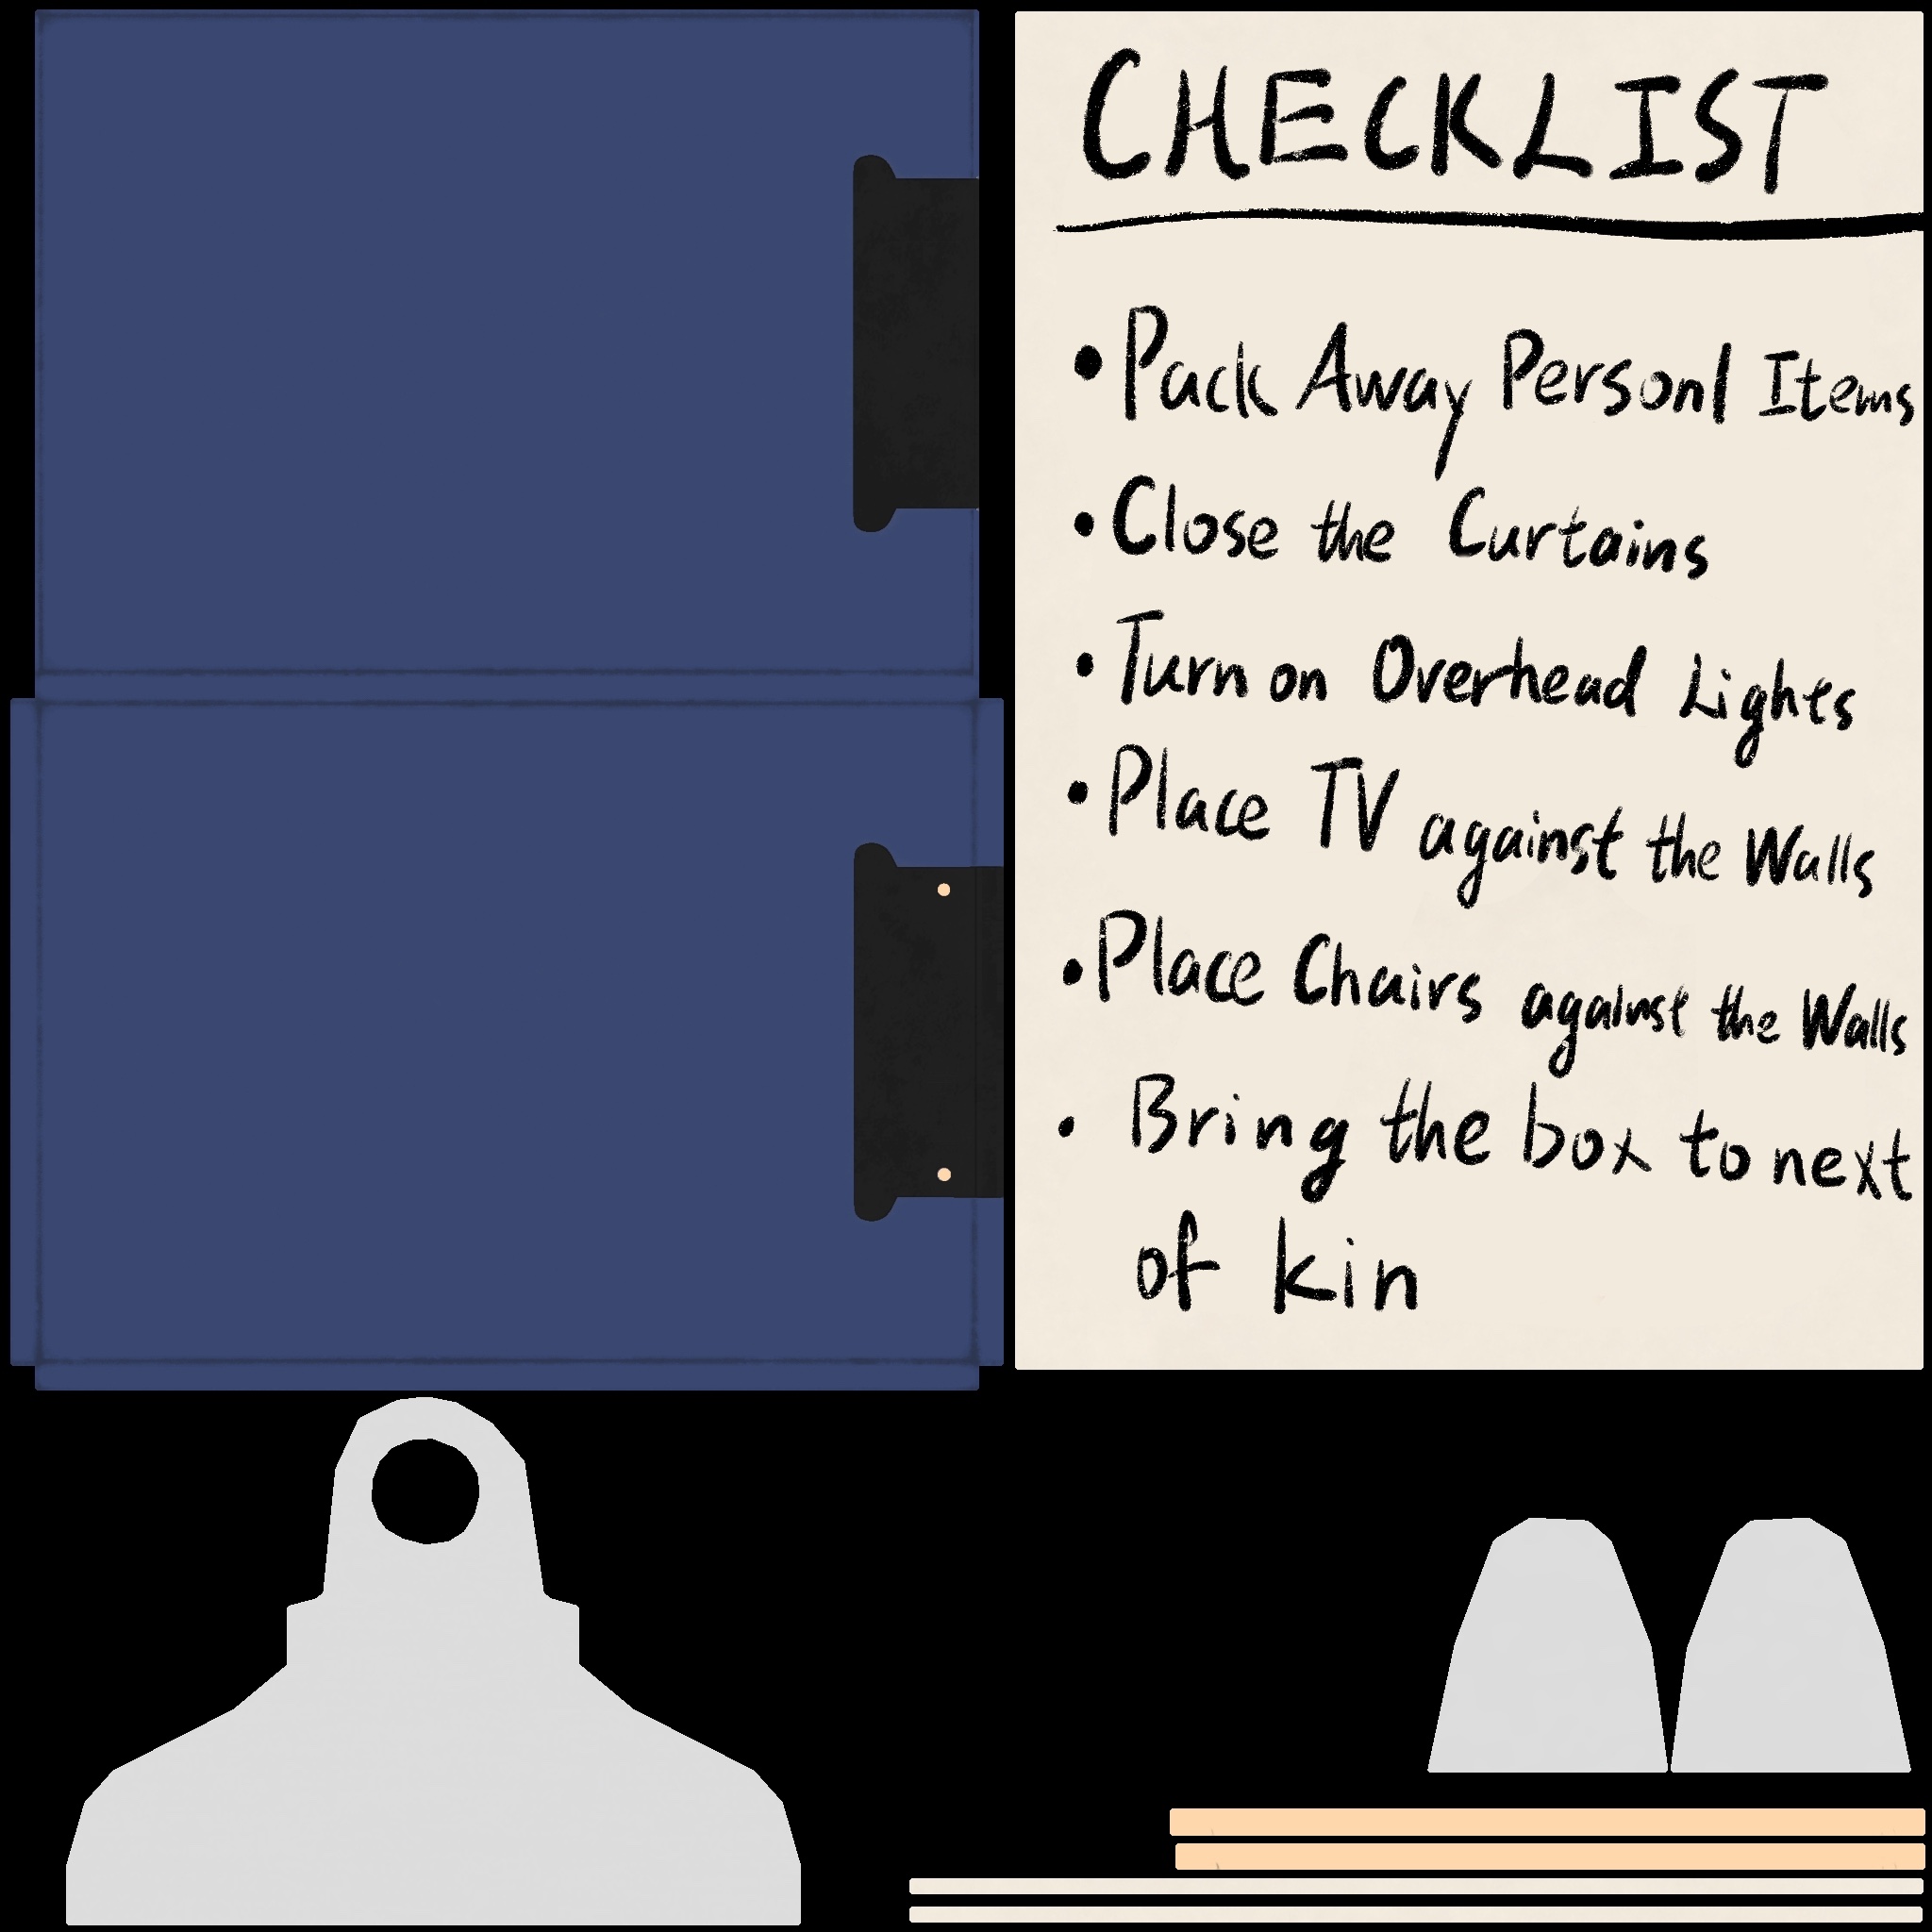 CHECKLIST
• Pack Away Personl Items
• Close the Curtains
• Turn on Overhead Lights
• Place TV against the Walls
• Place Chairs against the Walls
• Bring the box to next
of kin